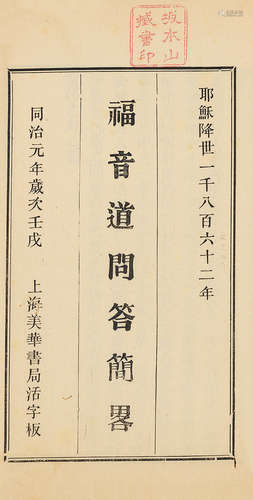 耶穌降世一千八百六十二年
福音道問答簡畧
同治元年歲次壬戌 上海美華書局活字板
坂本山
藏書印